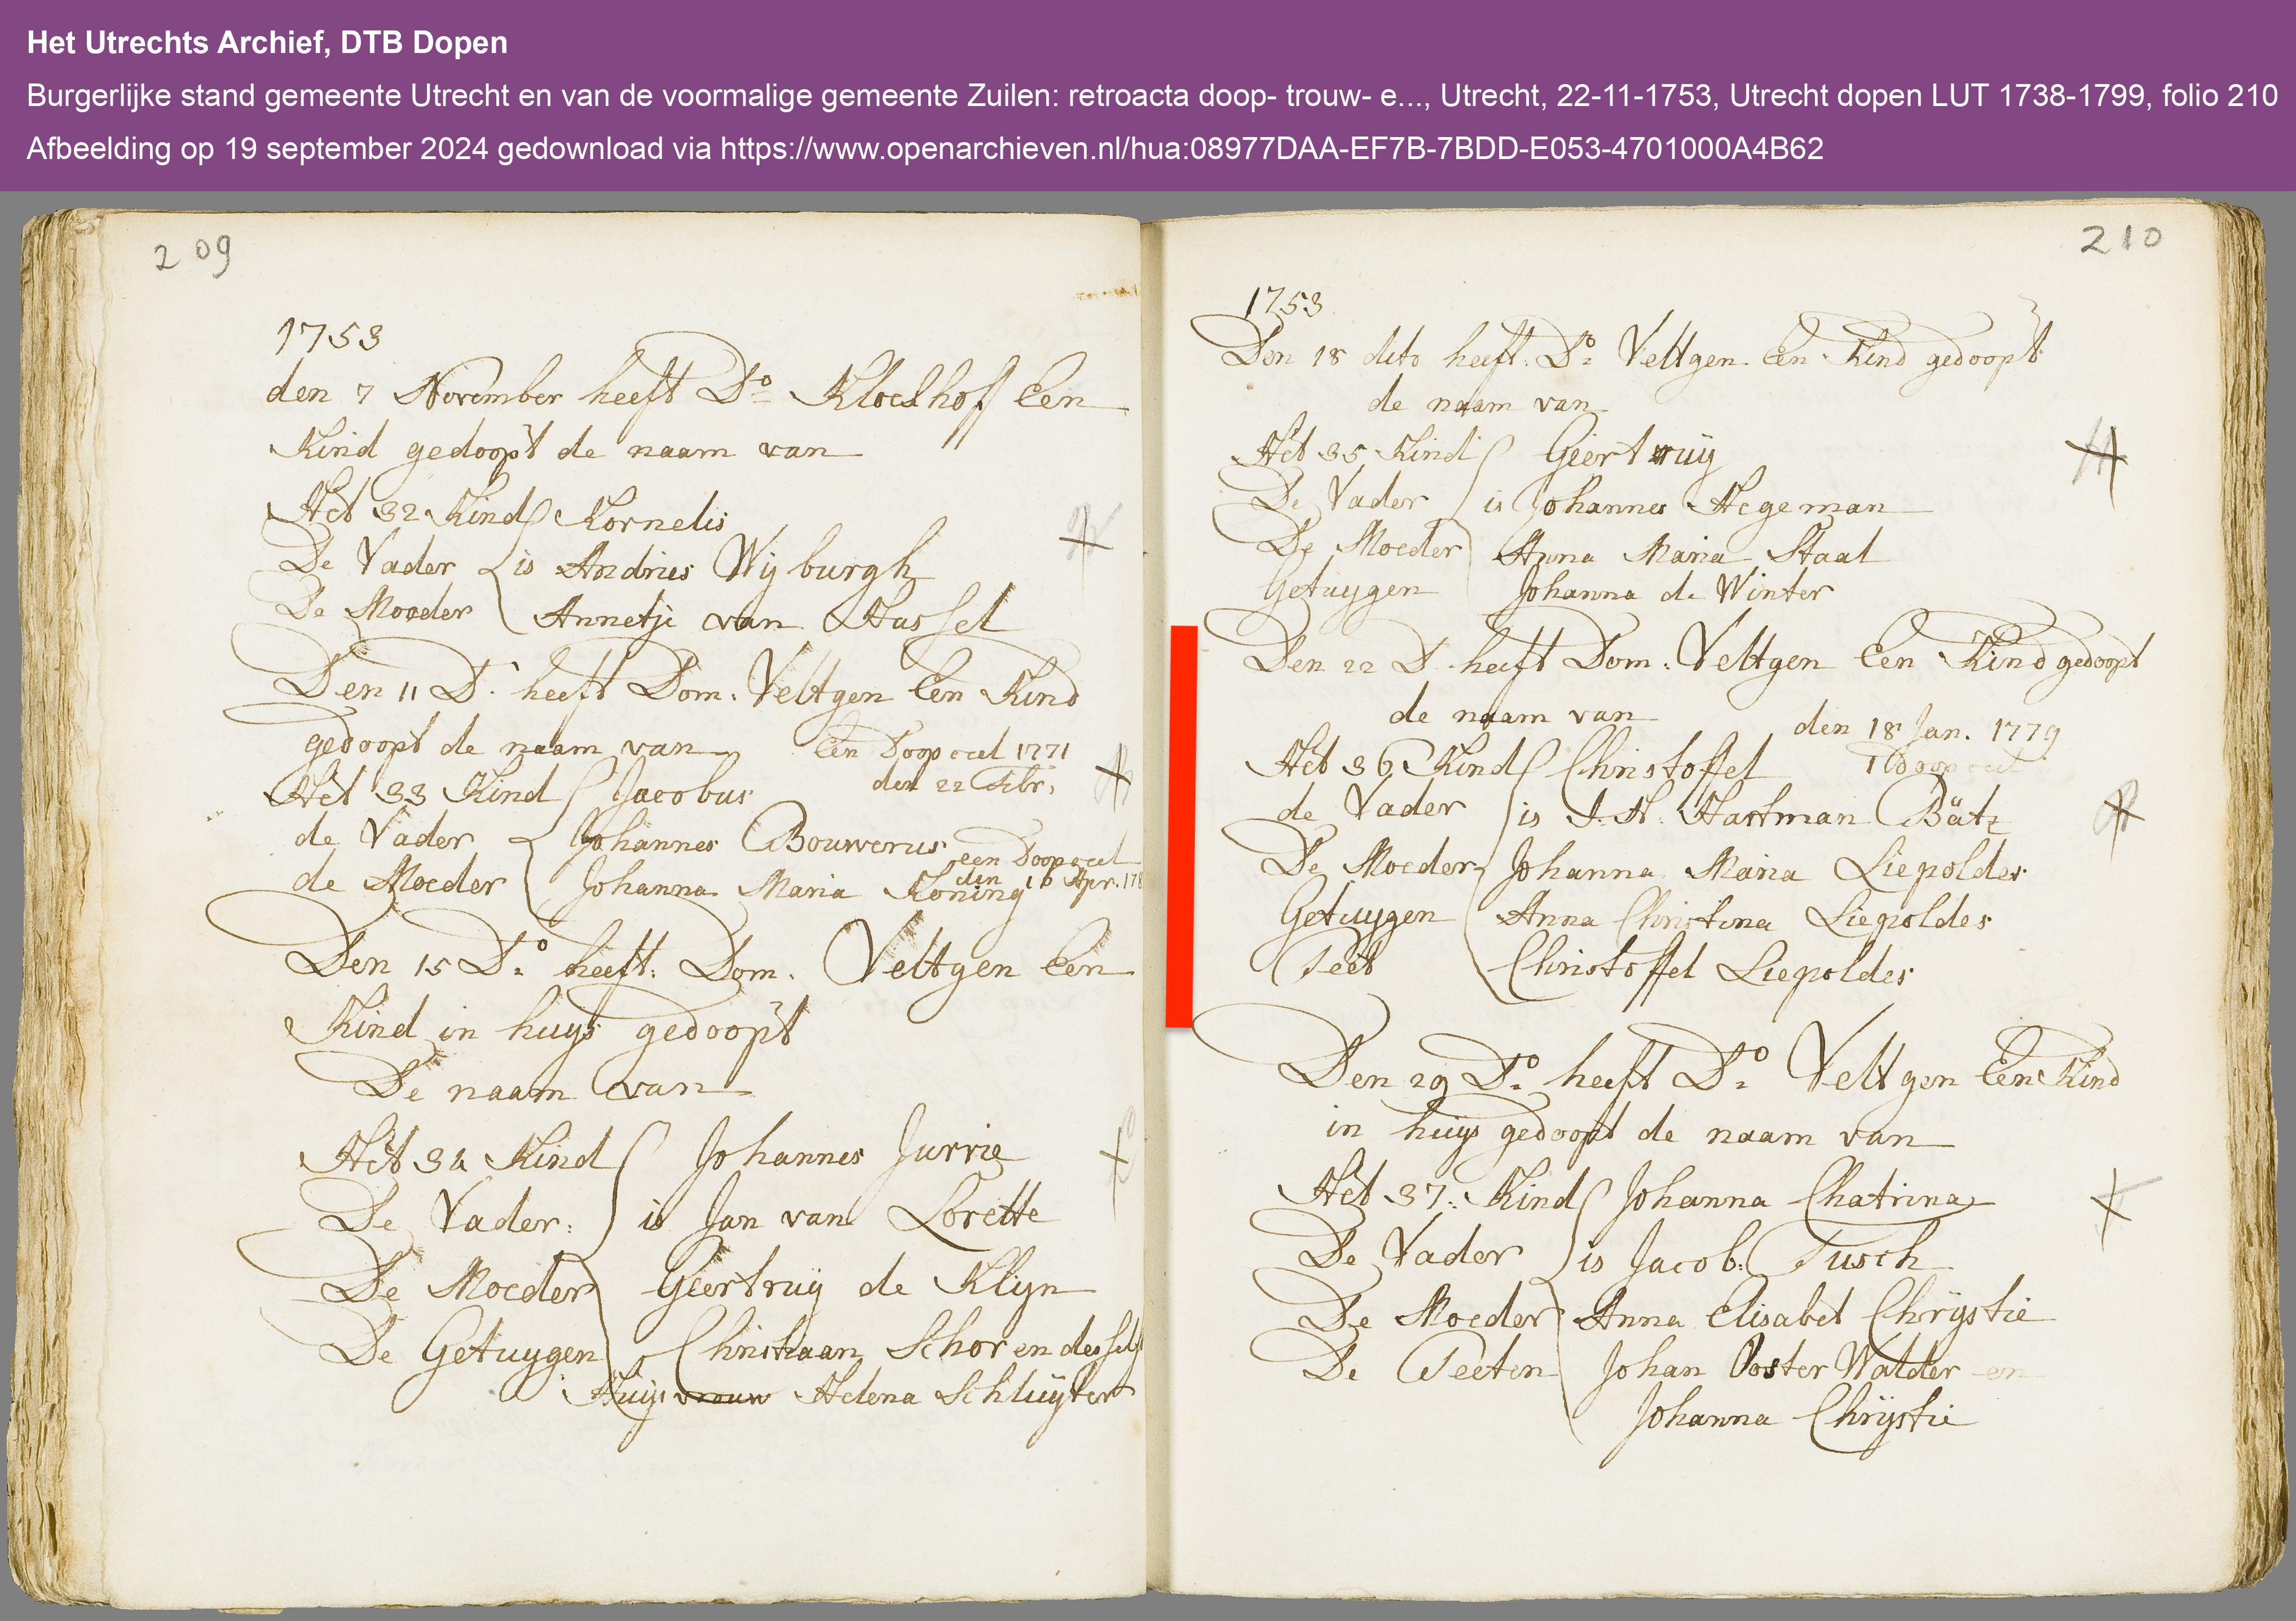 Het Utrechts Archief, DTB Dopen
Burgerlijke stand gemeente Utrecht en van de voormalige gemeente Zuilen: retroacta doop- trouw- e..., Utrecht, 22-11-1753, Utrecht dopen LUT 1738-1799, folio 210
Afbeelding op 19 september 2024 gedownload via https://www.openarchieven.nl/hua:08977DAA-EF7B-7BDD-E053-4701000A4B62
209
1753
den 7 November heeft Do Kloekhoff Een
Kind gedoopt de naam van
Het 32 Kind Kornelis
De Vader is Andries Wijburgh
De Moeder Annetje van Hassel
Den 11 D. heeft Dom. Veltgen Een Kind
gedoopt de naam van Een Doopceel 1771
den 22 Febr.
Het 33 Kind Jacobus
de Vader Johannes Bouwerus een Doopceel
den 16 Apr. 178
de Moeder Johanna Maria Koning
Den 15 Do heeft Dom. Veltgen Een
Kind in huijs gedoopt
De naam van
Het 34 Kind Johannes Jurrie
De Vader: is Jan van Lorette
De Moeder Geertruij de Klijn
De Getuygen Christiaan Schor en desselfs
Huijsvrouw Helena Schluijter
210
1753
Den 18 dito heeft Do Veltgen Een Kind gedoopt
de naam van
Het 35 Kind Geertruij
De Vader is Johannes Hegeman
De Moeder Anna Maria Staal
Getuygen Johanna de Winter
Den 22 D heeft Dom: Veltgen Een Kind gedoopt
de naam van den 18 Jan. 1779
1 doopceel
Het 36 Kind Christoffel
de Vader is J. H. Hartman Bätz
De Moeder Johanna Maria Liepoldes
Getuygen Anna Christina Liepoldes
Peet Christoffel Liepoldes
Den 29 Do heeft Do Veltgen Een Kind
in huijs gedoopt de naam van
Het 37: Kind Johanna Chatrina
De Vader is Jacob: Tusch
De Moeder Anna Elisabet Chrijstie
De Peeten Johan Ooster Walder en
Johanna Chrijstie